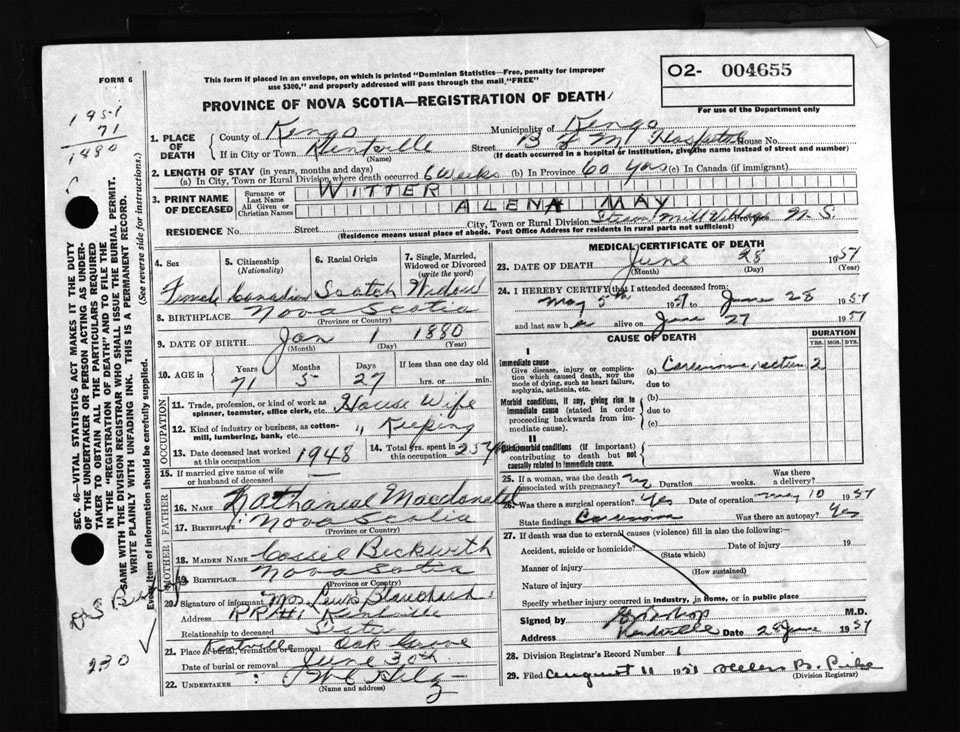 FORM 6
This form if placed in an envelope, on which is printed "Dominion Statistics—Free, penalty for improper
use $300," and properly addressed will pass through the mail "FREE"
PROVINCE OF NOVA SCOTIA—REGISTRATION OF DEATH
O2- 004655
For use of the Department only
1951
71
1880
1. PLACE OF DEATH
County of Kings Municipality of Kings
If in City or Town Kentville (Name) Street B F M Hospital House No.
(If death occurred in a hospital or institution, give the name instead of street and number)
2. LENGTH OF STAY (in years, months and days)
(a) In City, Town or Rural Division where death occurred 6 weeks (b) In Province 60 yrs (c) In Canada (if immigrant)
3. PRINT NAME OF DECEASED
Surname or Last Name WITTER
All Given or Christian Names ALENA MAY
RESIDENCE No. Street City, Town or Rural Division Steam Mill Village Province N. S.
(Residence means usual place of abode. Post Office Address for residents in rural parts not sufficient)
4. Sex Female
5. Citizenship (Nationality) Canadian
6. Racial Origin Scotch
7. Single, Married, Widowed or Divorced (write the word) Widow
8. BIRTHPLACE Nova Scotia
(Province or Country)
9. DATE OF BIRTH Jan 1 1880
(Month) (Day) (Year)
10. AGE in Years 71 Months 5 Days 27 If less than one day old hrs. or min.
OCCUPATION
11. Trade, profession, or kind of work as spinner, teamster, office clerk, etc. House Wife
12. Kind of industry or business, as cotton-mill, lumbering, bank, etc. " Keeping
13. Date deceased last worked at this occupation 1948
14. Total yrs. spent in this occupation 25
15. If married give name of wife or husband of deceased
FATHER
16. NAME Nathaniel Macdonald
17. BIRTHPLACE Nova Scotia
MOTHER
18. MAIDEN NAME Cassie Beckwith
19. BIRTHPLACE Nova Scotia
(Province or Country)
20. Signature of informant Mrs. Lewis Blanchard
Address RR#1 Kentville
Relationship to deceased Sister
21. Place of burial, cremation or removal Kentville Oak Grove
Date of burial or removal June 30th
22. UNDERTAKER
(Name and address)
MEDICAL CERTIFICATE OF DEATH
23. DATE OF DEATH June 28 1951
(Month) (Day) (Year)
24. I HEREBY CERTIFY that I attended deceased from:
May 5th 1951 to June 28 1951
and last saw her alive on June 27 1951
CAUSE OF DEATH
DURATION
YRS. MOS. DYS.
I
Immediate cause
Give disease, injury or complication which caused death, not the mode of dying, such as heart failure, asphyxia, asthenia, etc.
(a) Carcinoma rectum 2
due to
Morbid conditions, if any, giving rise to immediate cause (stated in order proceeding backwards from immediate cause).
(b)
due to
(c)
II
Other morbid conditions (if important) contributing to death but not causally related to immediate cause.
25. If a woman, was the death associated with pregnancy? No Duration weeks. Was there a delivery?
26. Was there a surgical operation? Yes Date of operation May 10 1951
State findings Carcinoma Was there an autopsy? Yes
27. If death was due to external causes (violence) fill in also the following:—
Accident, suicide or homicide? Date of injury 19
(State which)
Manner of injury
(How sustained)
Nature of injury
Specify whether injury occurred in Industry, in home, or in public place
Signed by M.D.
Address Kentville Date 28 June 1951
28. Division Registrar's Record Number 1
29. Filed August 11 1951
(Division Registrar)
SEC. 46—VITAL STATISTICS ACT MAKES IT THE DUTY
OF THE UNDERTAKER OR PERSON ACTING AS UNDER-
TAKER TO OBTAIN ALL THE PARTICULARS REQUIRED
IN THE "REGISTRATION OF DEATH" AND TO FILE THE
SAME WITH THE DIVISION REGISTRAR WHO SHALL ISSUE THE BURIAL PERMIT.
WRITE PLAINLY WITH UNFADING INK. THIS IS A PERMANENT RECORD.
Every item of information should be carefully supplied. (See reverse side for instructions.)
230